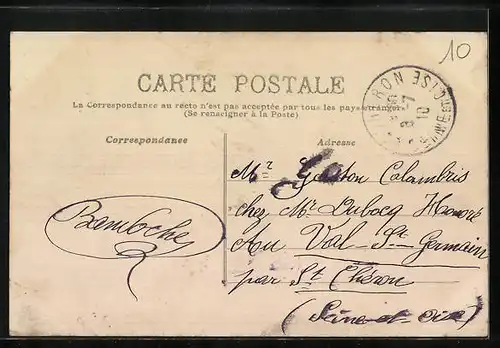 10
CARTE POSTALE
La Correspondance au recto n'est pas acceptée par tous les pays étrangers
(Se renseigner à la Poste)
Correspondance
Adresse
Mr Gaston Colambris
chez Mr Dubocq Honoré
Au Val-St-Germain
par St Chéron
(Seine-et-Oise)
Bamboche